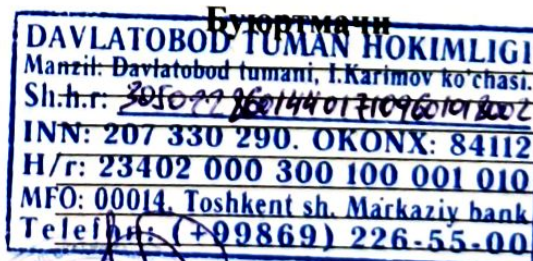 Буюртмачи
DAVLATOBOD TUMAN HOKIMLIGI
Manzil: Davlatobod tumani, I.Karimov ko'chasi.
Sh.h.r:
INN: 207 330 290. OKONX: 84112
H/r: 23402 000 300 100 001 010
MFO: 00014. Toshkent sh. Markaziy bank
Telefon: (+99869) 226-55-00